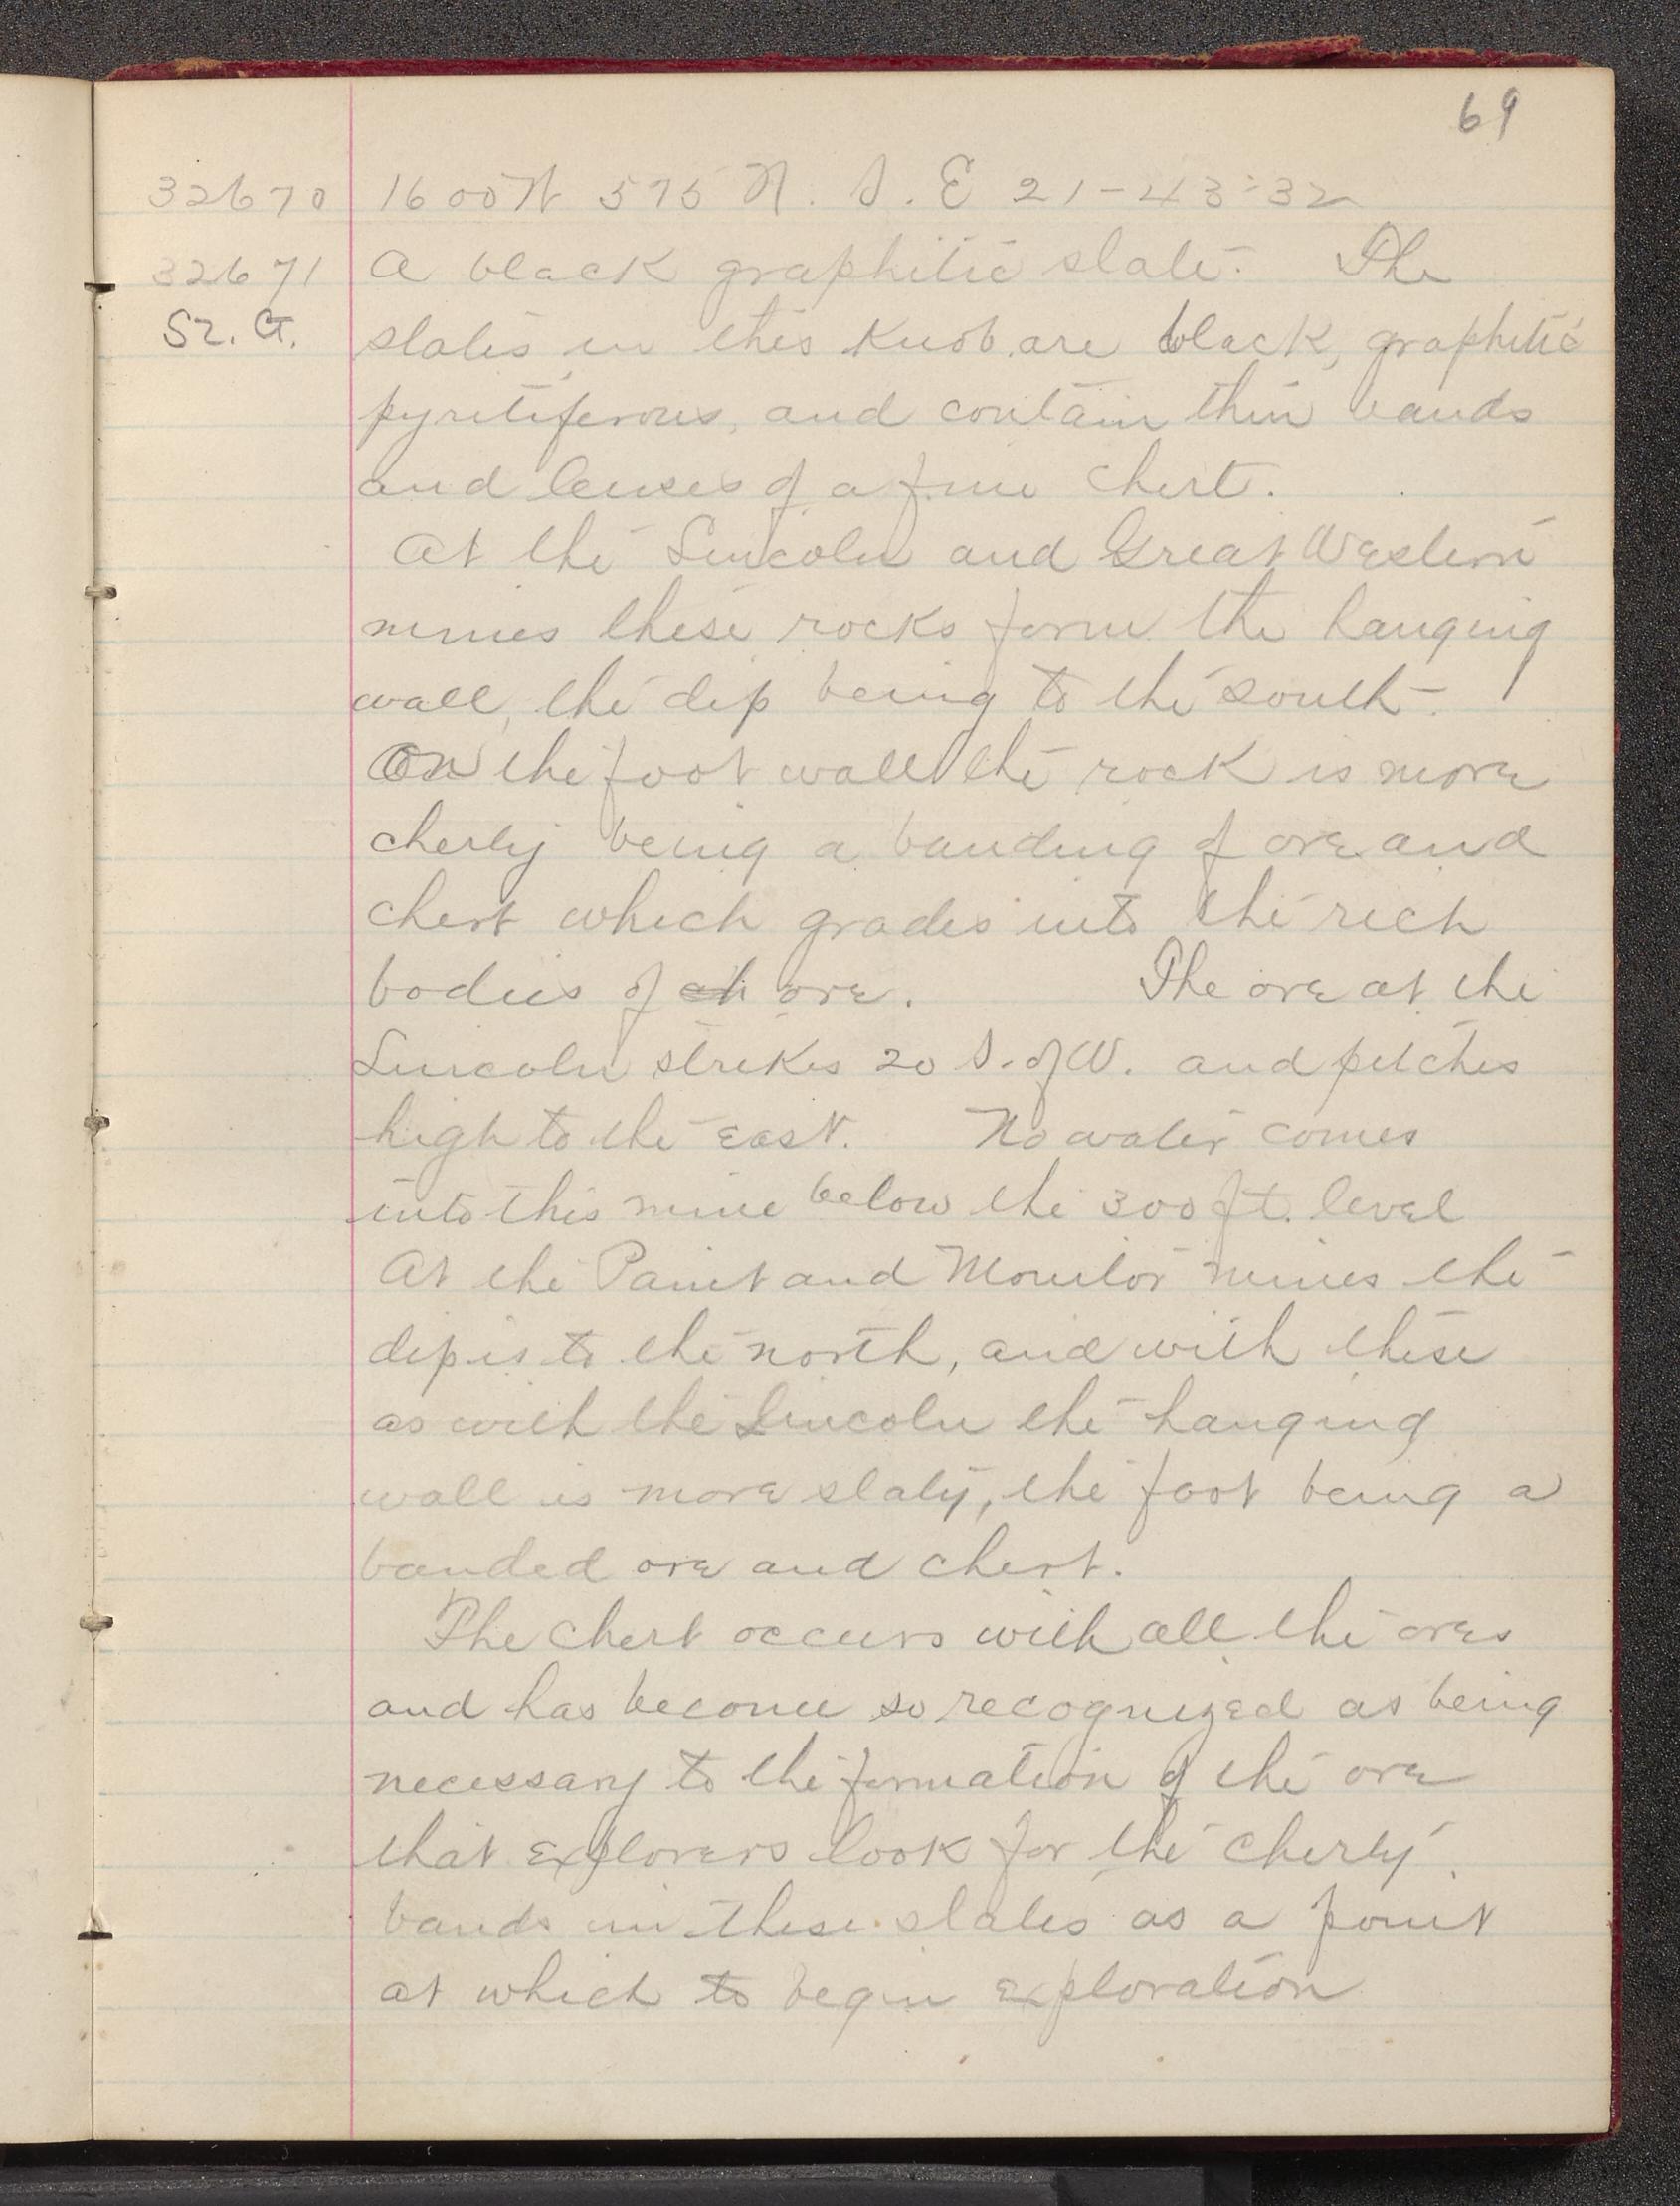 69
32670 1600 W 575 N. S. E 21-43-32
32671 A black graphitic slate. The
Sz. G. slates in this Knob are black, graphitic
pyritiferous, and contain thin bands
and lenses of a fine chert.
At the Lincoln and Great Western
mines these rocks form the hanging
wall, the dip being to the south.
On the foot wall the rock is more
cherty being a banding of ore and
chert which grades into the rich
bodies of ch ore. The ore at the
Lincoln strikes 20 S. of W. and pitches
high to the east. No water comes
into this mine below the 300 ft. level
At the Paint and Monitor mines the
dip is to the north, and with these
as with the Lincoln the hanging
wall is more slaty, the foot being a
banded ore and chert.
The chert occurs with all the ores
and has become so recognized as being
necessary to the formation of the ore
that explorers look for the cherty
bands in these slates as a point
at which to begin exploration